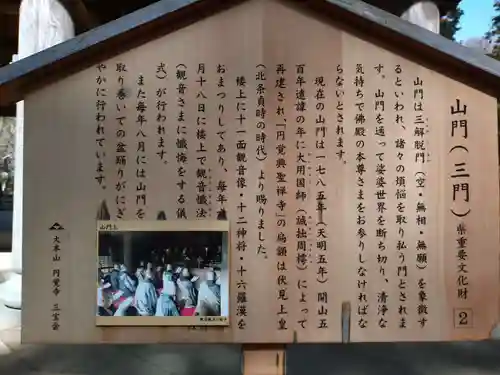 山門(三門)県重要文化財
2
山門は三解脱門(空・無相・無願)を象徴す
るといわれ、諸々の煩悩を取り払う門とされま
す。山門を通って娑婆世界を断ち切り、清浄な
気持ちで佛殿の本尊さまをお参りしなければな
らないとされます。
現在の山門は一七八五年(天明五年)開山五
百年遠諱の年に大用国師(誠拙周樗)によって
再建され「円覚興聖禅寺」の扁額は伏見上皇
(北条貞時の時代)より賜りました。
楼上に十一面観音像・十二神将・十六羅漢を
おまつりしてあり、毎年
月十八日に楼上で観音懺法
(観音さまに懺悔をする儀
式)が行われます。
また毎年八月には山門を
取り巻いての盆踊りがにぎ
やかに行われています。
山門楼上
大本山 円覚寺 三宝会